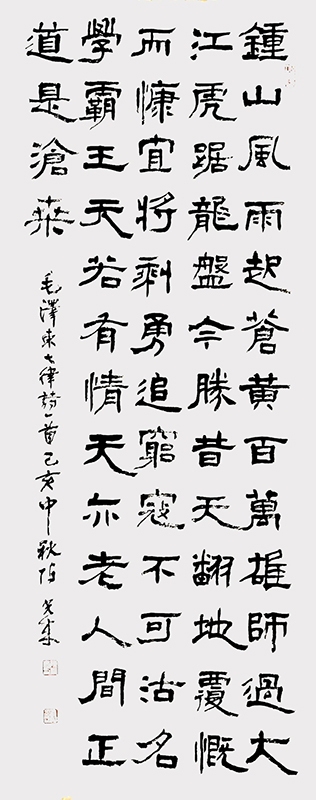 鍾山風雨起蒼黃百萬雄師過大
江虎踞龍盤今勝昔天翻地覆慨
而慷宜將剩勇追窮寇不可沽名
學霸王天若有情天亦老人間正
道是滄桑
毛澤東七律詩一首己亥中秋